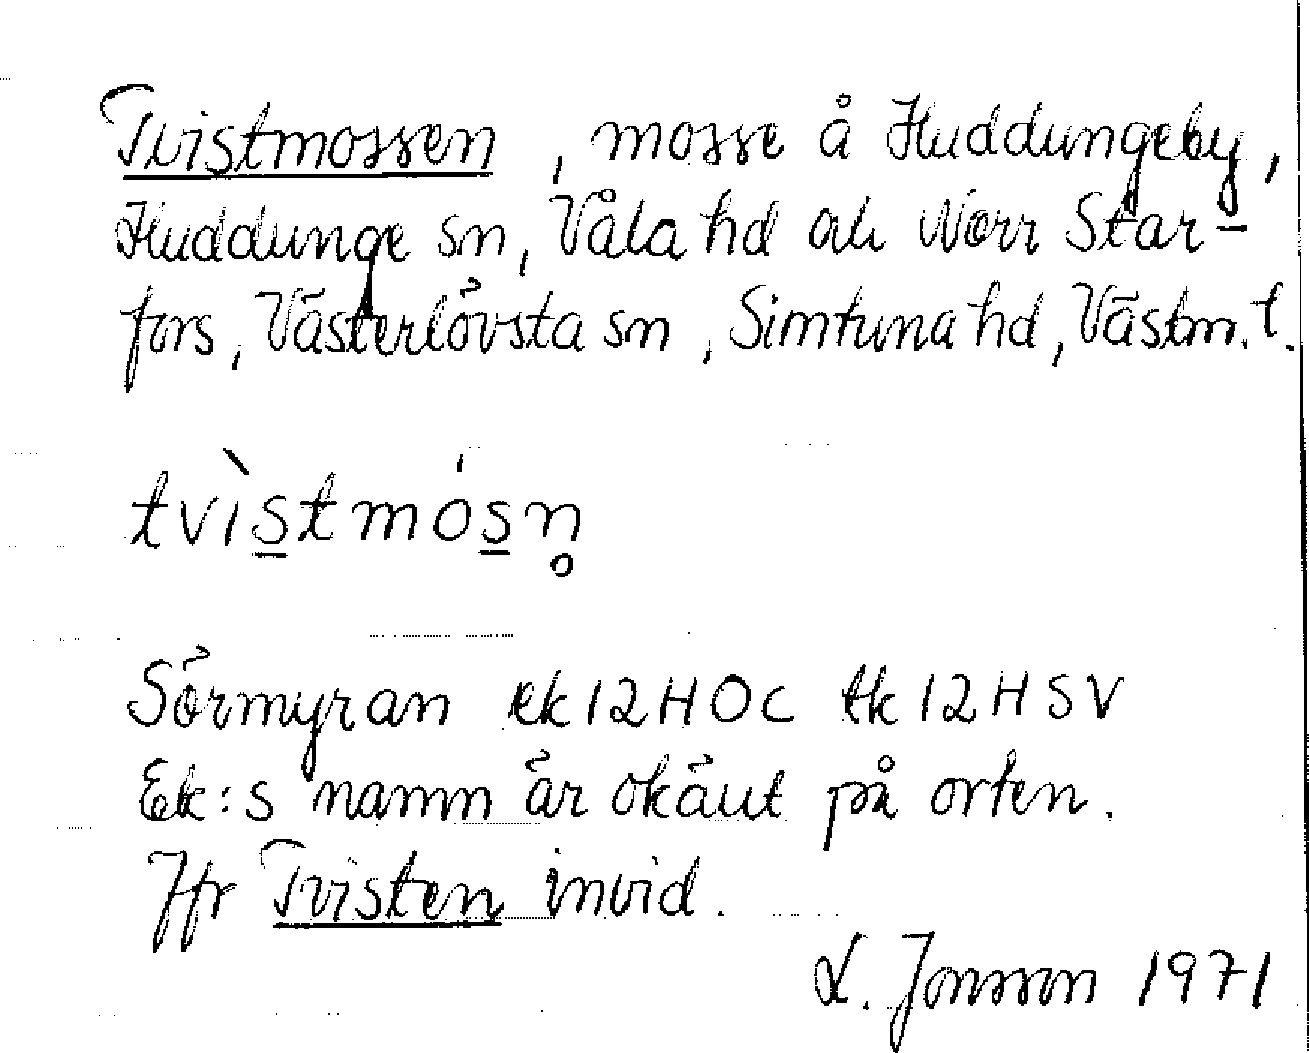 Tvistmossen, mosse å Huddungeby,
Huddunge sn, Våla hd och Norr Star-
fors, Västerlövsta sn, Simtuna hd, Västm. l.
tvìstmósn̥
Sörmyran ek 12H0c tk 12H SV
Ek:s namn är okänt på orten.
Jfr Tvisten invid.
L. Jonsson 1971